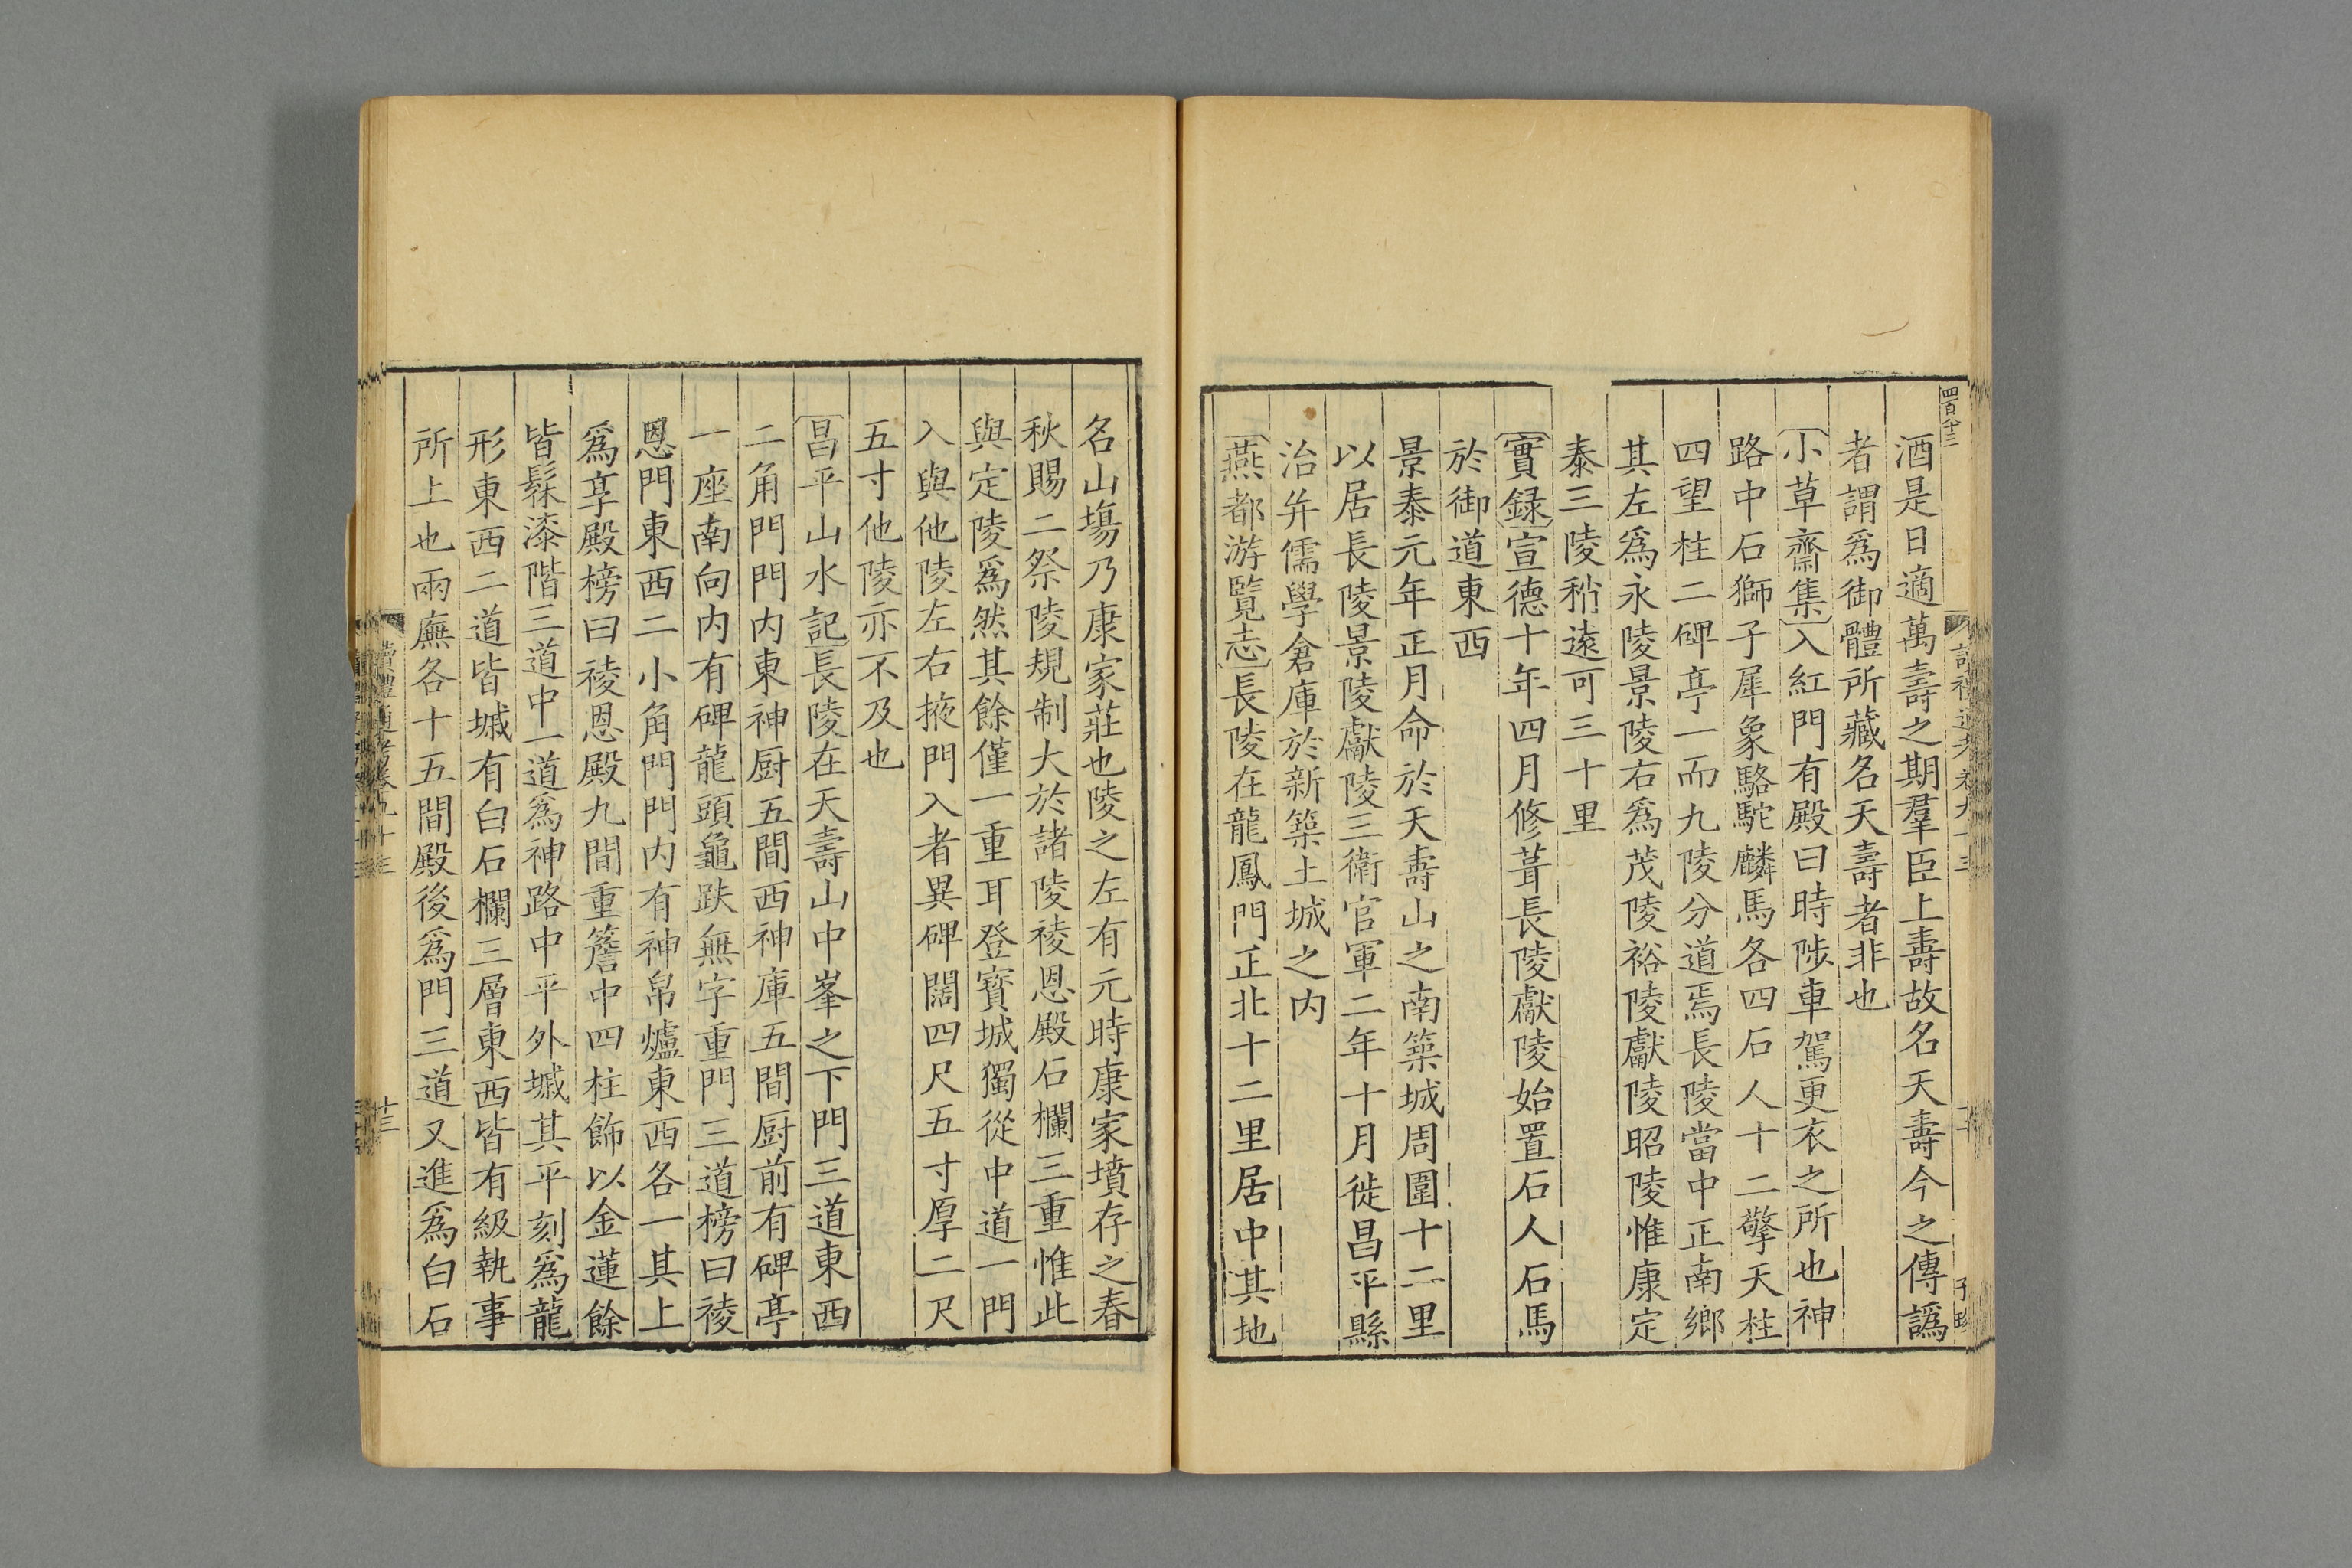 酒是日適萬壽之期羣臣上壽故名天壽今之傳譌
者謂爲御體所藏名天壽者非也
〔小草齋集〕入紅門有殿曰時陟車駕更衣之所也神
路中石獅子犀象駱駝麟馬各四石人十二擎天柱
四望柱二碑亭一而九陵分道焉長陵當中正南鄉
其左爲永陵景陵右爲茂陵裕陵獻陵昭陵惟康定
泰三陵稍遠可三十里
〔實録〕宣德十年四月修葺長陵獻陵始置石人石馬
於御道東西
景泰元年正月命於天壽山之南築城周圍十二里
以居長陵景陵獻陵三衛官軍二年十月徙昌平縣
治并儒學倉庫於新築土城之内
〔燕都游覽志〕長陵在龍鳳門正北十二里居中其地
名山塲乃康家莊也陵之左有元時康家墳存之春
秋賜二祭陵規制大於諸陵祾恩殿石欄三重惟此
與定陵爲然其餘僅一重耳登寳城獨從中道一門
入與他陵左右掖門入者異碑闊四尺五寸厚二尺
五寸他陵亦不及也
〔昌平山水記〕長陵在天壽山中峯之下門三道東西
二角門門内東神厨五間西神庫五間厨前有碑亭
一座南向内有碑龍頭龜趺無字重門三道榜曰祾
恩門東西二小角門門内有神帛爐東西各一其上
爲享殿榜曰祾恩殿九間重簷中四柱飾以金蓮餘
皆髹漆階三道中一道爲神路中平外墄其平刻爲龍
形東西二道皆墄有白石欄三層東西皆有級執事
所上也兩廡各十五間殿後爲門三道又進爲白石